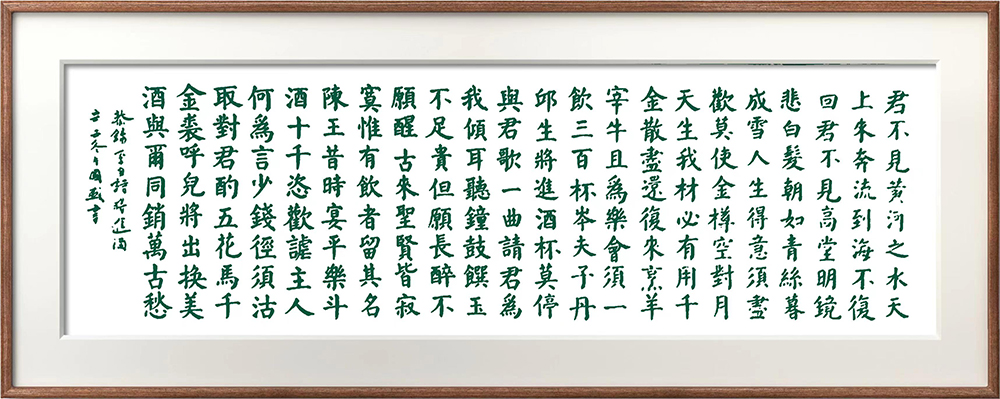 君不見黃河之水天
上來奔流到海不復
回君不見高堂明鏡
悲白髮朝如青絲暮
成雪人生得意須盡
歡莫使金樽空對月
天生我材必有用千
金散盡還復來烹羊
宰牛且爲樂會須一
飲三百杯岑夫子丹
邱生將進酒杯莫停
與君歌一曲請君爲
我傾耳聽鐘鼓饌玉
不足貴但願長醉不
願醒古來聖賢皆寂
寞惟有飲者留其名
陳王昔時宴平樂斗
酒十千恣歡謔主人
何爲言少錢徑須沽
取對君酌五花馬千
金裘呼兒將出換美
酒與爾同銷萬古愁
恭錄李白詩將進酒
國盛書